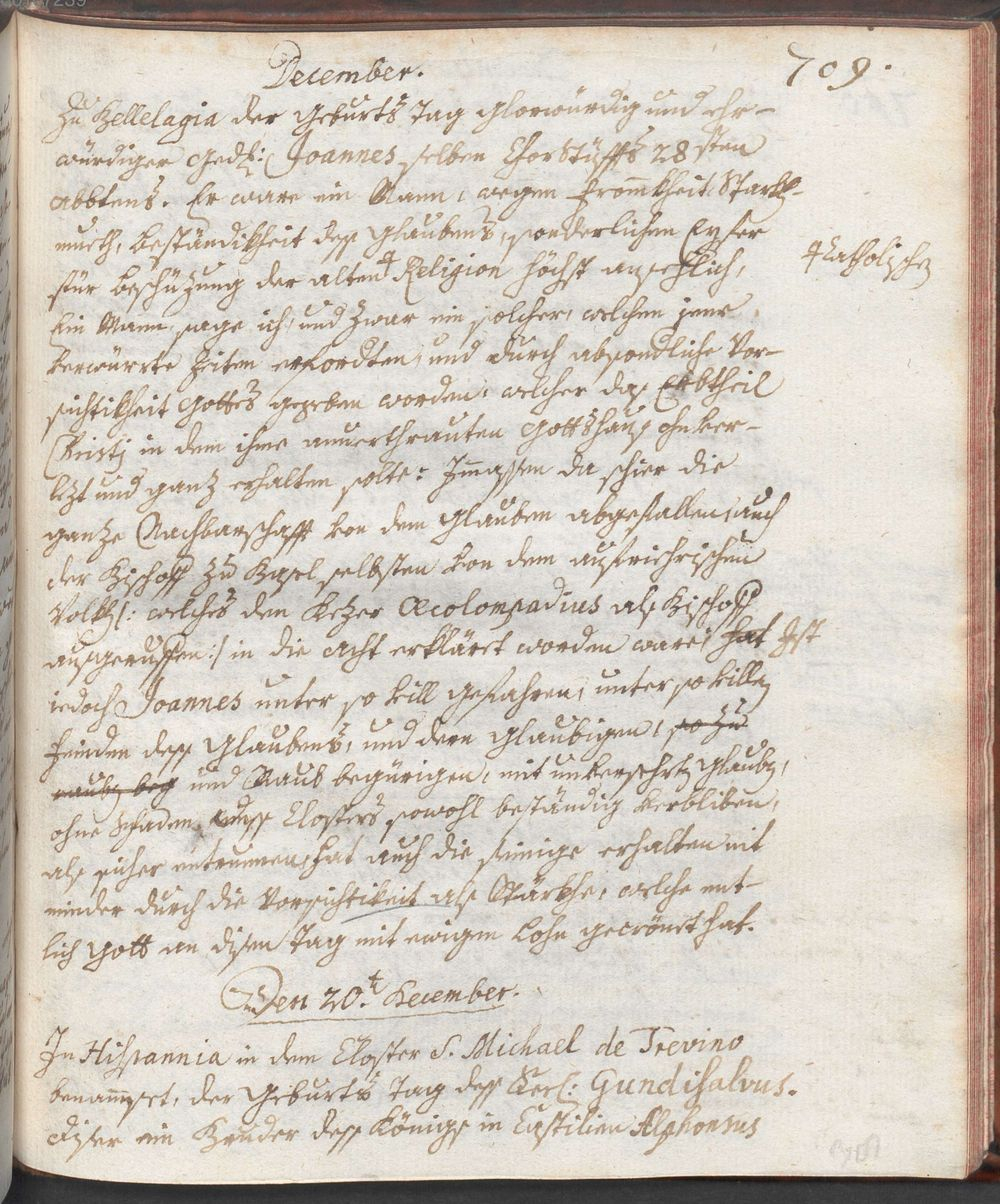 December.
709.
Zu Bellelagia der Geburts Tag Glorwürdig und Ehr-
würdiger Ged: Joannes selben Chorstüffts 28sten
abbtens. Er ware ein Mann, wegen frommkheit, Starkh-
mueth, beständikheit deß Glaubens, sonderlichen Eyfer
für beschüzung der alten ╬ Religion höchst ansehlich,
╬ Catholischen
Ein Mann, sage ich, und zwar ein solcher, welchen jene
verwürrte Zeiten erfordten, und durch absondliche Vor-
sichtikheit Gottes gegeben worden, welcher daß Erbtheil
Christi in dem ihme anverthrauten Gottshauß ohnver-
lezt und ganz erhalten solte: Immassen da schier die
ganze Nachbarschafft von dem Glauben abgefallen, auch
der Bischoff zu Basel selbsten von dem aufriehrischen
Volkh /: welches den Kezer Oecolompadius alß Bischoff
außgeruffen :/ in die acht erkläret worden ware, hat Ist
iedoch Joannes unter so vill gefahren, unter so villen
feinden deß Glaubens, und dern Glaubigen, so zu
raub beg und Raub begürigen, mit unversehrten Glauben,
ohne schaden deß Closters sowohl beständig verbliben,
alß sicher entrunnen, hat auch die seinige erhalten nit
minder durch die Vorsichtikeit alß Stärkhe, welche ent-
lich Gott an disem Tag mit ewigen Lohn gecrönet hat.
Den 20.t December.
In Hispannia in dem Closter S. Michael de Trevino
benammset, der Geburts Tag deß Seel: Gundisalvus.
diser ein Bruder deß Königs in Castilien Alphonsus